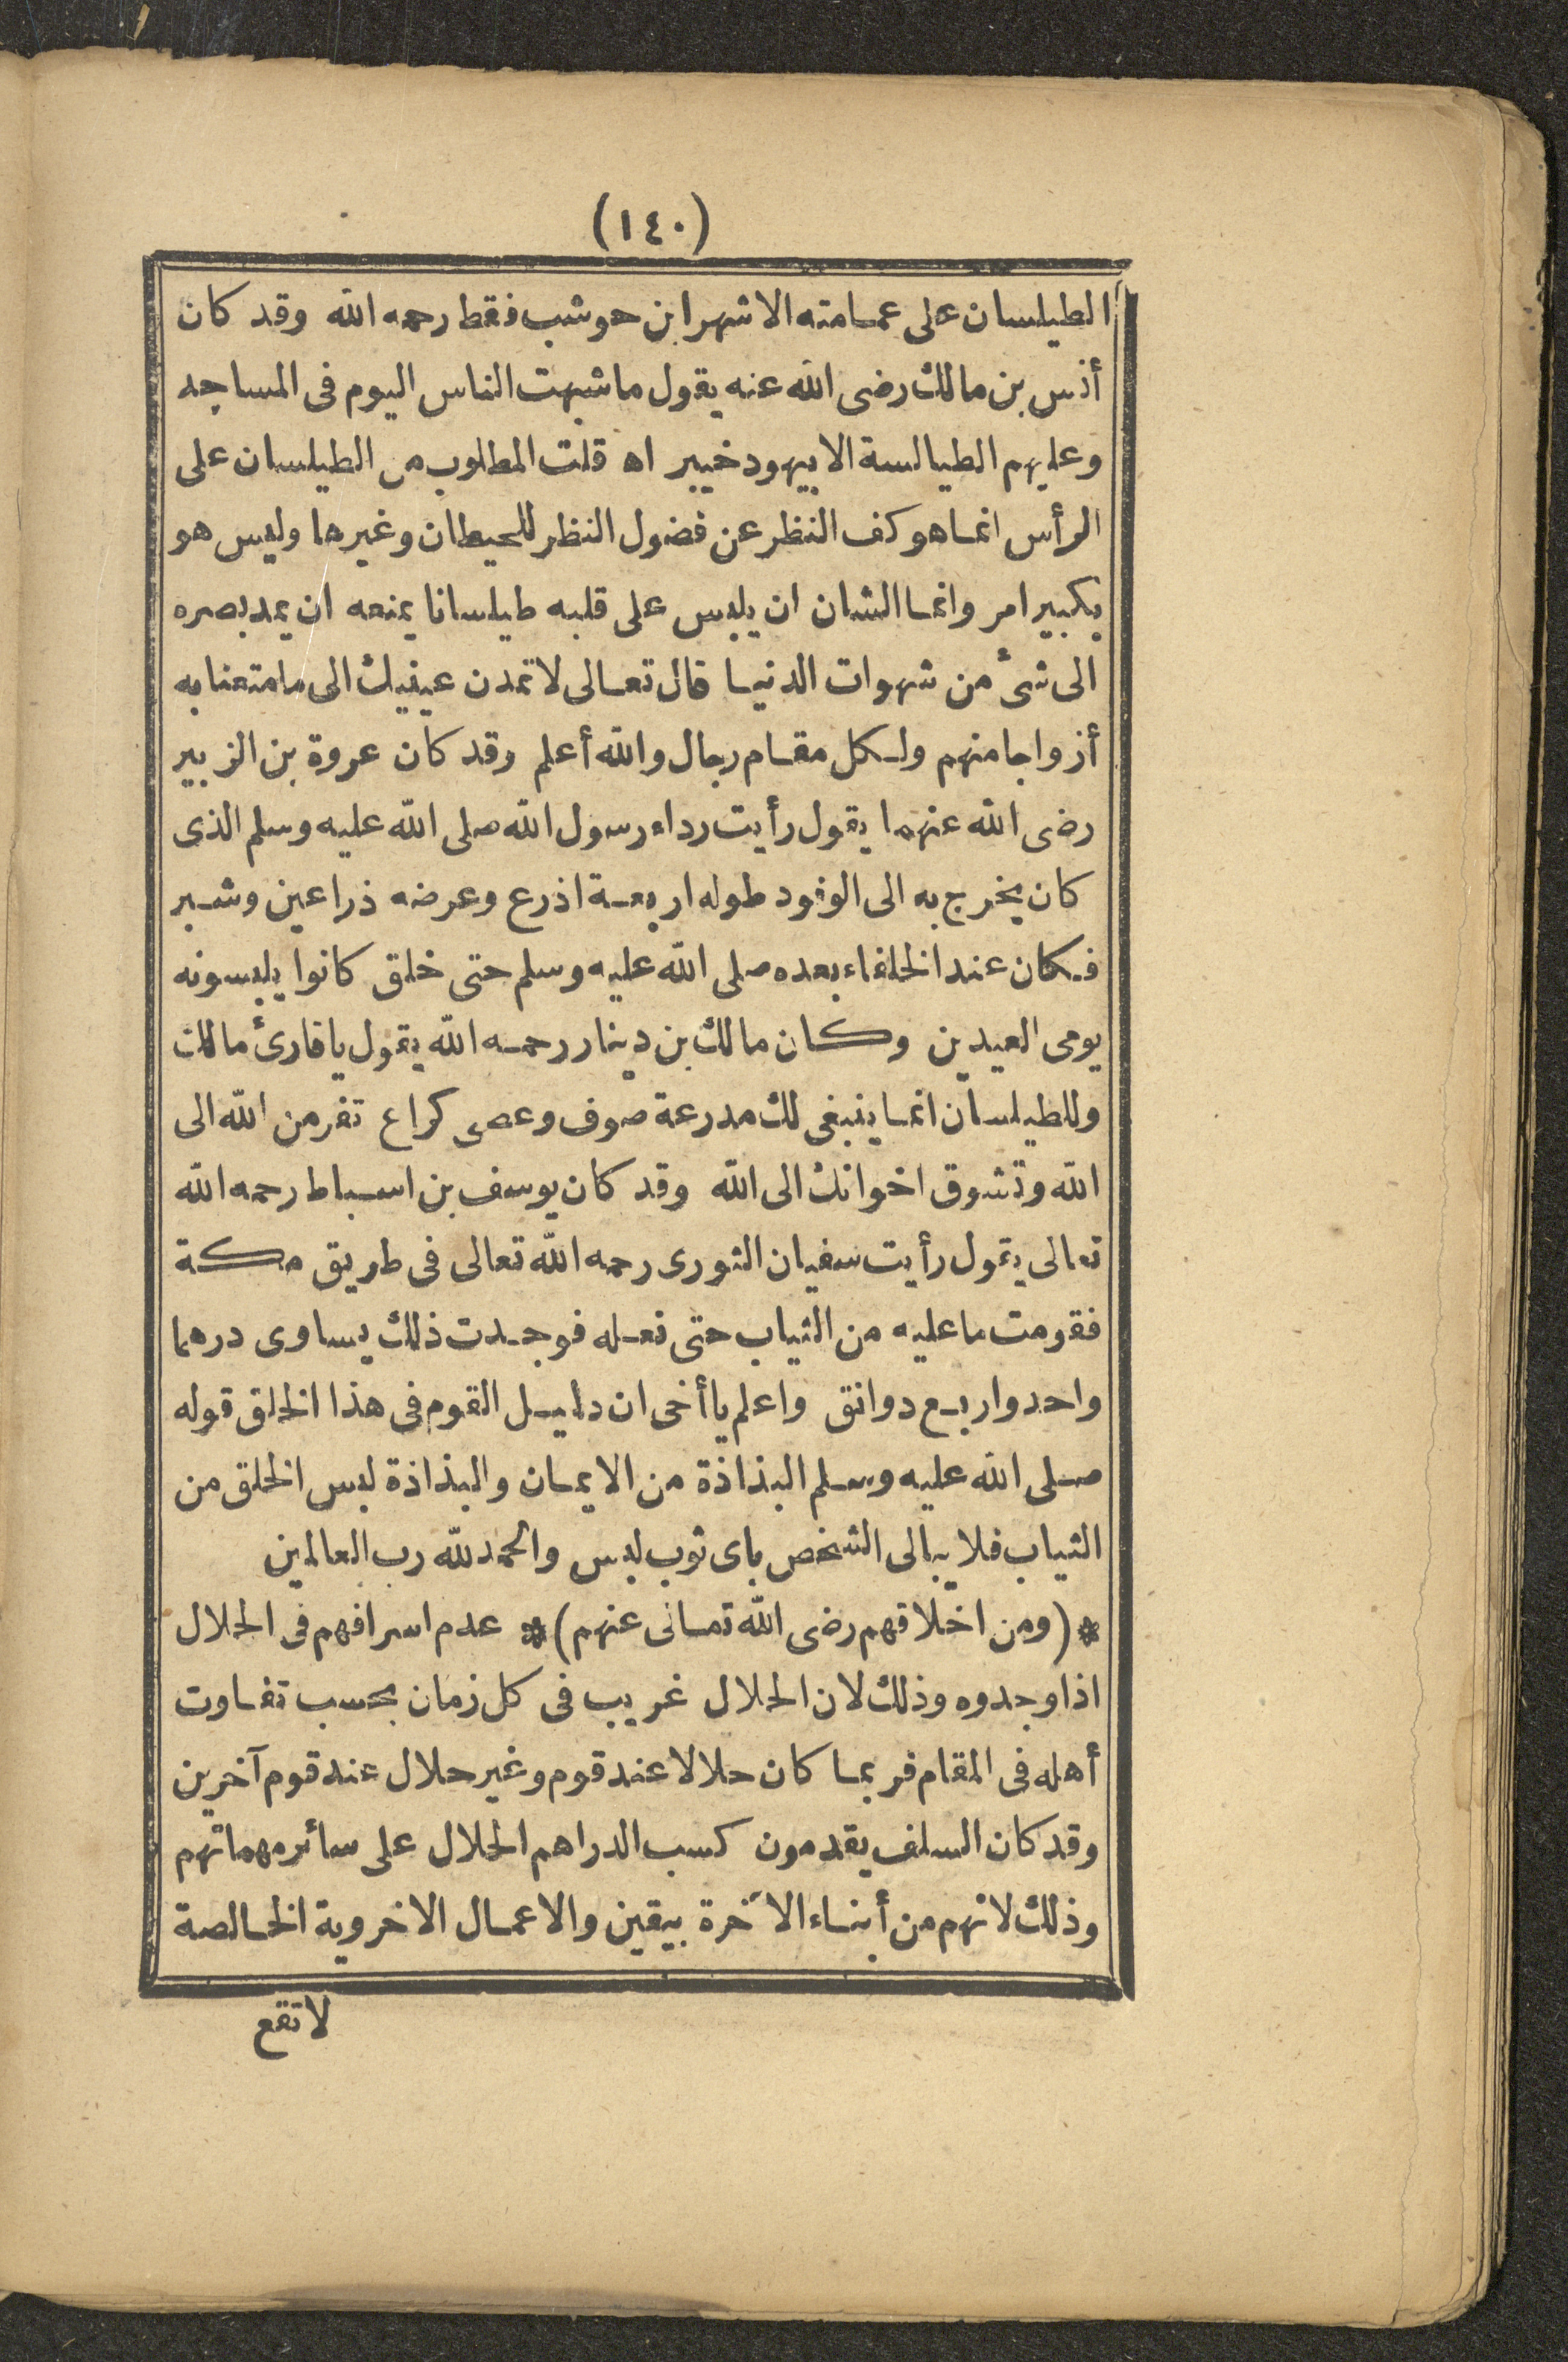 (١٤٠)
الطيلسان على عمامته الا شهر ابن حوشب فقط رحمه الله وقد كان
أنس بن مالك رضى الله عنه يقول ما شبهت الناس اليوم فى المساجد
وعليهم الطيالسة الا بيهود خيبر اه قلت المطلوب من الطيلسان على
الرأس انما هو كف النظر عن فضول النظر للحيطان وغيرها وليس هو
بكبير امر وانما الشان ان يلبس على قلبه طيلسانا يمنعه ان يمد بصره
الى شئ من شهوات الدنيا قال تعالى لا تمدن عينيك الى ما متعنا به
أزواجا منهم ولكل مقام رجال والله أعلم وقد كان عروة بن الزبير
رضى الله عنهما يقول رأيت رداء رسول الله صلى الله عليه وسلم الذى
كان يخرج به الى الوفود طوله اربعة اذرع وعرضه ذراعين وشبر
فكان عند الخلفاء بعده صلى الله عليه وسلم حتى خلق كانوا يلبسونه
يومى العيدين وكان مالك بن دينار رحمه الله يقول يا قارئ مالك
وللطيلسان انما ينبغى لك مدرعة صوف وعصى كراع تفر من الله الى
الله وتشوق اخوانك الى الله وقد كان يوسف بن اسباط رحمه الله
تعالى يقول رأيت سفيان الثورى رحمه الله تعالى فى طريق مكة
فقومت ما عليه من الثياب حتى نعله فوجدت ذلك يساوى درهما
واحد واربع دوانق واعلم يا أخى ان دليل القوم فى هذا الخلق قوله
صلى الله عليه وسلم البذاذة من الايمان والبذاذة لبس الخلق من
الثياب فلا يبالى الشخص باى ثوب لبس والحمد لله رب العالمين
* (ومن اخلاقهم رضى الله تعالى عنهم) * عدم اسرافهم فى الحلال
اذا وجدوه وذلك لان الحلال غريب فى كل زمان بحسب تفاوت
أهله فى المقام فربما كان حلالا عند قوم وغير حلال عند قوم آخرين
وقد كان السلف يقدمون كسب الدراهم الحلال على سائر مهماتهم
وذلك لانهم من أبناء الآخرة بيقين والاعمال الاخروية الخالصة
لا تقع